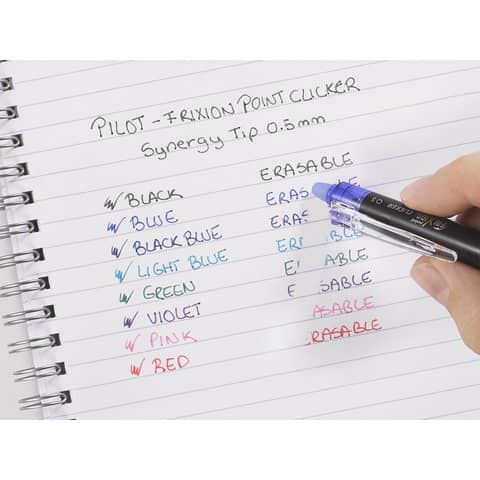 PILOT - FRIXION POINT CLICKER
Synergy Tip 0.5mm
BLACK ERASABLE
BLUE ERAS LE
BLACK BLUE ERAS
LIGHT BLUE ER BLE
GREEN E ABLE
VIOLET E SABLE
PINK ASABLE
RED RASABLE
CLICKER 0.5